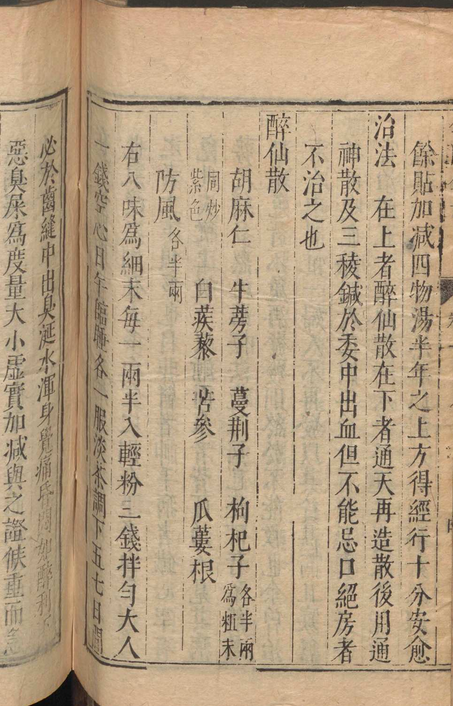 餘貼加减四物湯半年之上方得經行十分安愈
治法　在上者醉仙散在下者通天再造散後用通
神散及三稜鍼於委中出血但不能忌口絕房者
不治之也
醉仙散
胡麻仁　牛蒡子　蔓荆子　枸杞子各半兩爲粗末
同炒紫色　白蒺藜　苦參　瓜蔞根
防風各半兩
右八味爲細末每一兩半入輕粉三錢拌勻大人
一錢空心日午臨睡各一服淡茶調下五七日間
必於齒縫中出臭涎水渾身覺痛昏悶如醉利下
惡臭屎爲度量大小虛實加减與之證候重而急